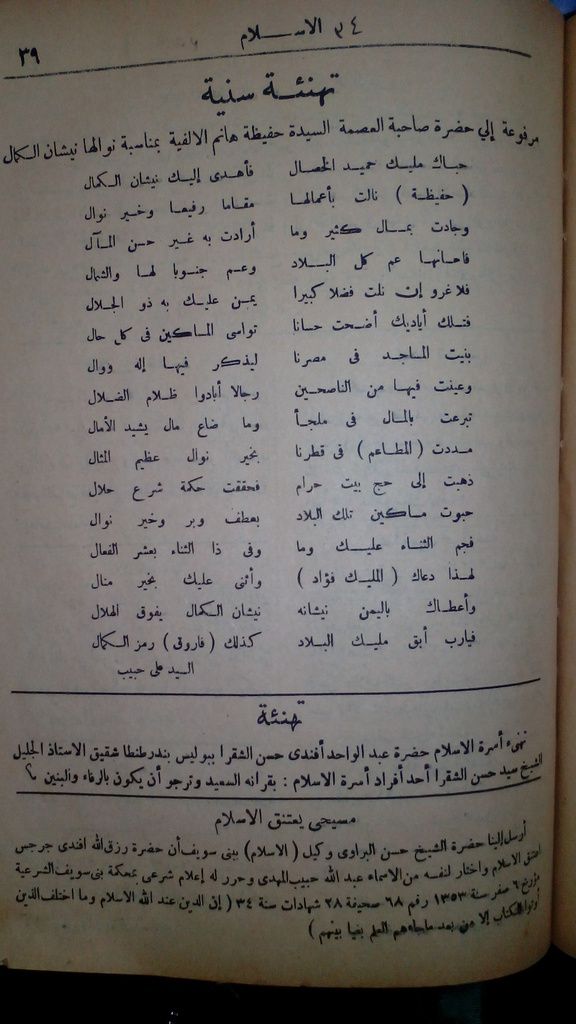 ٣٤ الاســلام
٣٩
تهنئــة سنية
مرفوعة إلي حضرة صاحبة العصمة السيدة حفيظة هانم الالفية بمناسبة نوالها نيشان الكمال
حباك مليك حميد الخصال فأهدى إليك نيشان الكمال
( حفيظة ) نالت بأعمالها مقاما رفيعا وخير نوال
وجادت بمال كثير وما أرادت به غير حسن المآل
فاحسانها عم كل البلاد وعم جنوبا لها والشمال
فلا غرو إن نلت فضلا كبيرا يمن عليك به ذو الجلال
فتلك أياديك أضحت حسانا تواسى المساكين فى كل حال
بنيت المساجد فى مصرنا ليذكر فيها إله ووال
وعينت فيها من الناصحين رجالا أبادوا ظلام الضلال
تبرعت بالمال فى ملجأ وما ضاع مال يشيد الأمال
مددت ( المطاعم ) فى قطرنا بخير نوال عظيم المثال
ذهبت إلى حج بيت حرام فحققت حكمة شرع حلال
حبوت مساكين تلك البلاد بعطف وبر وخير نوال
فجم الثناء عليك وما وفى ذا الثناء بعشر الفعال
لهذا دعاك ( المليك فؤاد ) وأثنى عليك بخير منال
وأعطاك باليمن نيشانه نيشان الكمال يفوق الهلال
فيارب أبق مليك البلاد كذلك ( فاروقى ) رمز الكمال
السيد على حبيب
تهنئة
تهنىء أسرة الاسلام حضرة عبد الواحد أفندى حسن الشقرا ببوليس بندر طنطا شقيق الاستاذ الجليل
الشيخ سيد حسن الشقرا أحد أفراد أسرة الاسلام : بقرانه السعيد وترجو أن يكون بالرفاء والبنين
مسيحى يعتنق الاسلام
أرسل إلينا حضرة الشيخ حسن البراوى وكيل ( الاسلام ) ببنى سويف أن حضرة رزق الله افندى جرجس
اعتنق الاسلام واختار لنفسه من الاسماء عبد الله حبيب المهدى وحرر له إعلام شرعى بمحكمة بنى سويف الشرعية
مؤرخ ٦ صفر سنة ١٣٥٣ رقم ٦٨ صحيفة ٢٨ شهادات سنة ٣٤ ( إن الدين عند الله الاسلام وما اختلف الذين
أوتوا الكتاب إلا من بعد ماجاءهم العلم بغيا بينهم )